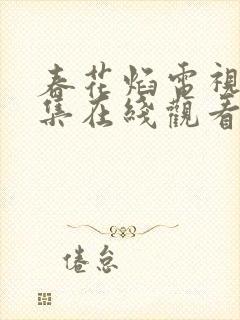 春花焰電視
集在綫觀看
倦怠